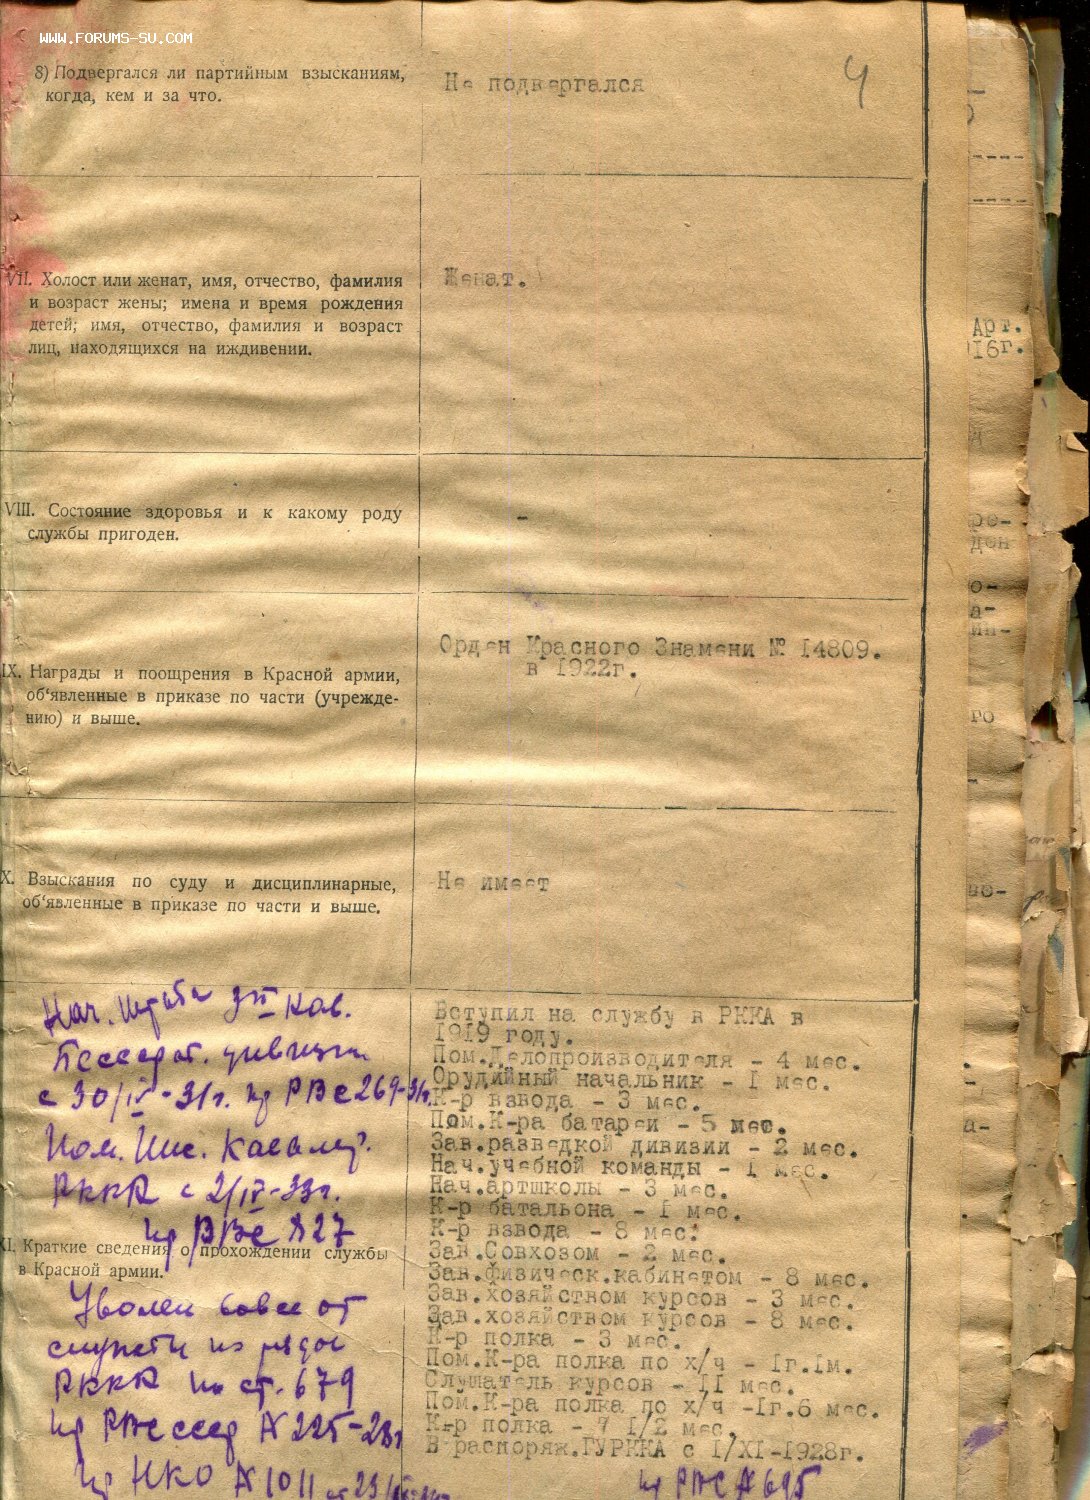 WWW.FORUMS-SU.COM
4
8) Подвергался ли партийным взысканиям,
когда, кем и за что.
Не подвергался
VII. Холост или женат, имя, отчество, фамилия
и возраст жены; имена и время рождения
детей; имя, отчество, фамилия и возраст
лиц, находящихся на иждивении.
Женат.
VIII. Состояние здоровья и к какому роду
службы пригоден.
-
IX. Награды и поощрения в Красной армии,
об'явленные в приказе по части (учрежде-
нию) и выше.
Орден Красного Знамени № 14809.
в 1922г.
X. Взыскания по суду и дисциплинарные,
об'явленные в приказе по части и выше.
Не имеет
Нач. Штаба 3й Кав.
Бессараб. дивизии
с 30/IV-31г. пр РВС 269-31г.
Пом. Инс. Кавалер.
РККА с 2/IV-33г.
пр РВС 827
XI. Краткие сведения о прохождении службы
в Красной армии.
Уволен вовсе от
службы из рядов
РККА по ст. 679
пр РВС СССР № 225-28г
пр НКО № 1011
Вступил на службу в РККА в
1919 году.
Пом.Делопроизводителя - 4 мес.
Орудийный начальник - I мес.
К-р взвода - 3 мес.
Пом.К-ра батареи - 5 мес.
Зав.разведкой дивизии - 2 мес.
Нач.учебной команды - I мес.
Нач.артшколы - 3 мес.
К-р батальона - I мес.
К-р взвода - 8 мес.
Зав.Совхозом - 2 мес.
Зав.физическ.кабинетом - 8 мес.
Зав.хозяйством курсов - 3 мес.
Зав.хозяйством курсов - 8 мес.
К-р полка - 3 мес.
Пом.К-ра полка по х/ч - Iг.Iм.
Слушатель курсов - II мес.
Пом.К-ра полка по х/ч -Iг.6 мес.
К-р полка - 7 I/2 мес.
В распоряж.ГУРККА с I/XI-1928г.
пр РВС № 695
Арт.
16г.
ре-
ден
о-
а-
ми-
го
во-
а-